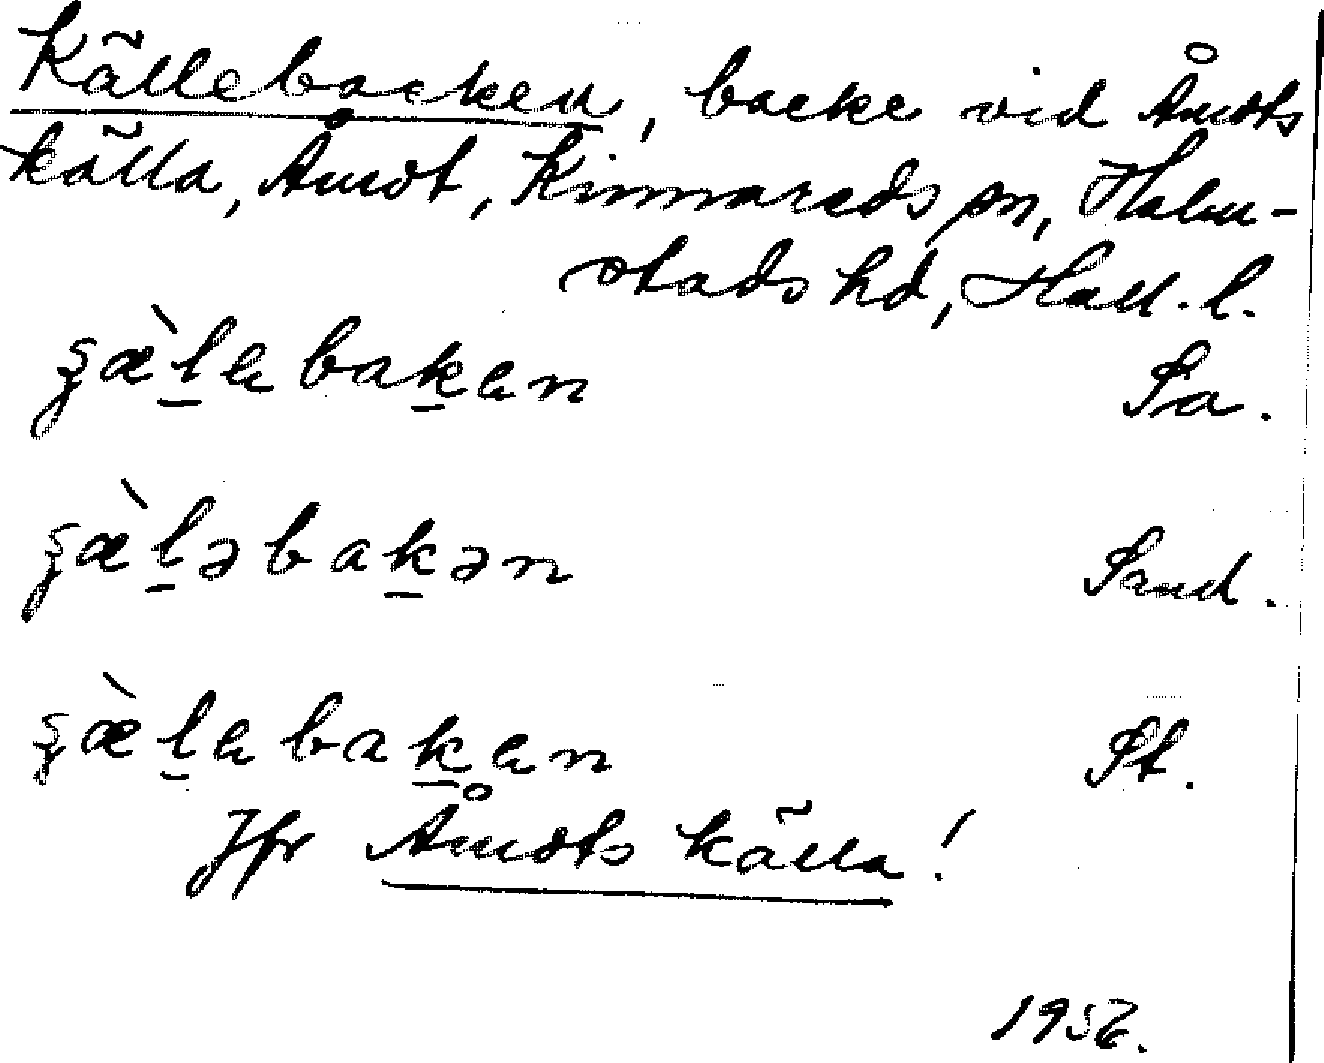 Källebacken, backe vid Åmots
källa, Åmot, Kinnareds sn, Halm-
stads hd, Hall. l.
ʂæ̀l̠ebak̠en Sa.
ʂæ̀l̠əbak̠ən Sand.
ʂæ̀l̠ebak̠en St.
Jfr Åmots källa!